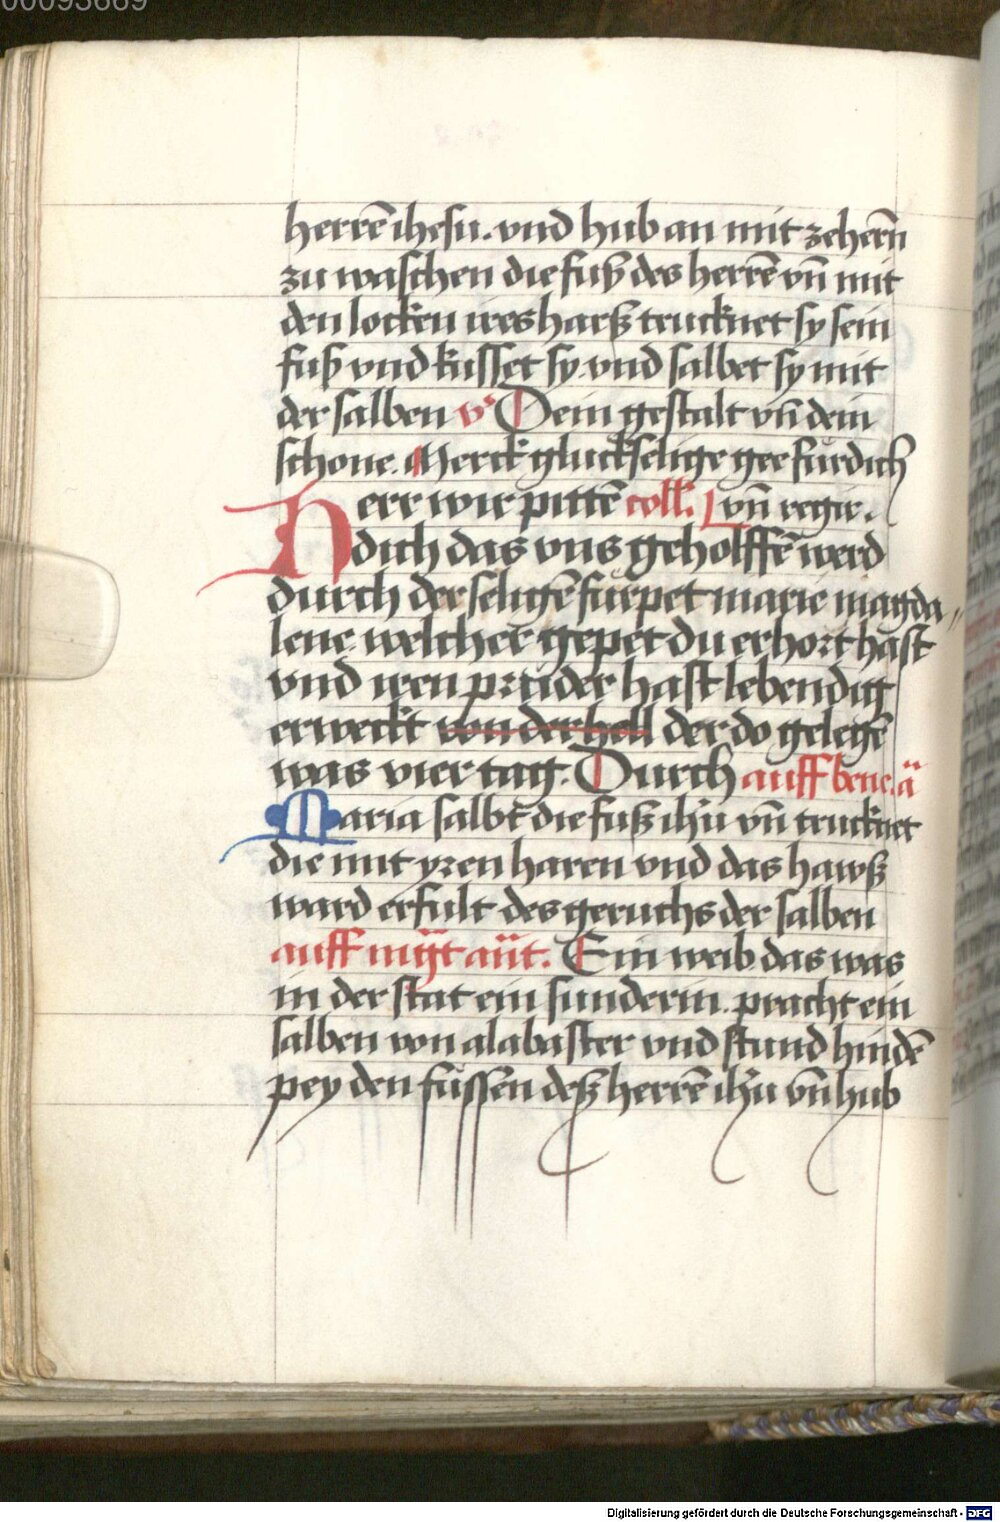 00093669
herrē ihesu. vnd hub an mit zehern̄
zu waschen die fuß des herrē vn̄ mit
den locken ires harß trucknet sy sein
fuß vnd kusset sy vnd salbet sy mit
der salben v͛s Dein gestalt vn̄ dein
schone. Merck gluckselige gee fur dich
Herr wir pittē coll̄. vn̄ regir.
dich das vns geholffē werd
durch der seligē fürpet marie magda„
lene welcher gepet du erhort hast
vnd iren pruder hast lebendig
erweckt von der hell der do gelegē
was vier tag. Durch auff bene. ā
Maria salbt̄ die fuß ihū vn̄ trucknet
die mit yren haren vnd das hawß
ward erfult des geruchs der salben
auff mḡt an̄t. Ein weib das was
in der stat ein sunderin. pracht ein
salben von alabaster vnd stund hindē
pey den füssen deß herrē ihū vn̄ hub
Digitalisierung gefördert durch die Deutsche Forschungsgemeinschaft - DFG